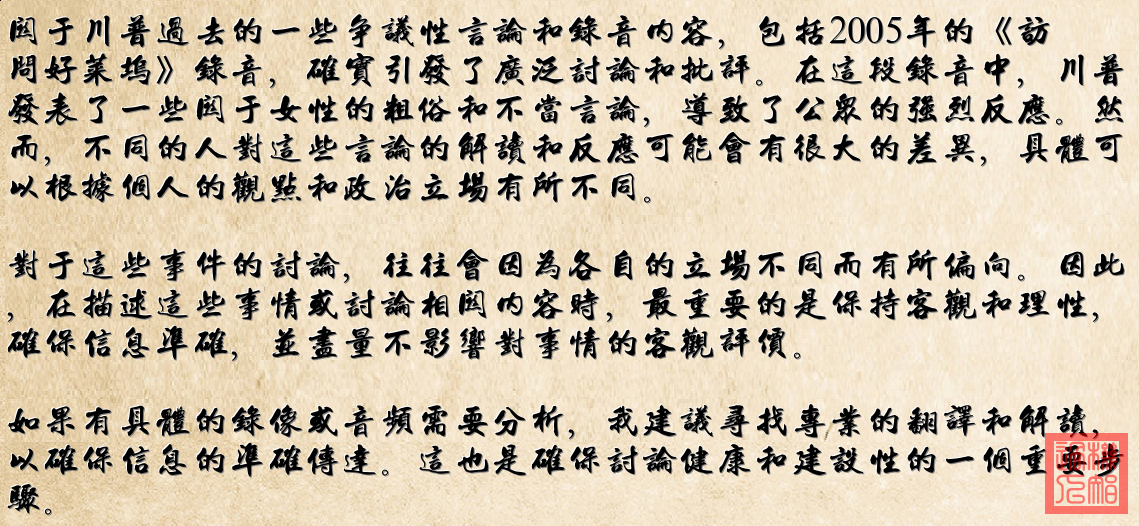 関于川普過去的一些争議性言論和錄音内容，包括2005年的《訪
問好萊塢》錄音，確實引發了廣泛討論和批評。在這段錄音中，川普
發表了一些関于女性的粗俗和不當言論，導致了公眾的強烈反應。然
而，不同的人對這些言論的解讀和反應可能會有很大的差異，具體可
以根據個人的觀點和政治立場有所不同。
對于這些事件的討論，往往會因為各自的立場不同而有所偏向。因此
，在描述這些事情或討論相関内容時，最重要的是保持客觀和理性，
確保信息準確，並盡量不影響對事情的客觀評價。
如果有具體的錄像或音頻需要分析，我建議尋找專業的翻譯和解讀，
以確保信息的準確傳達。這也是確保討論健康和建設性的一個重要步
驟。